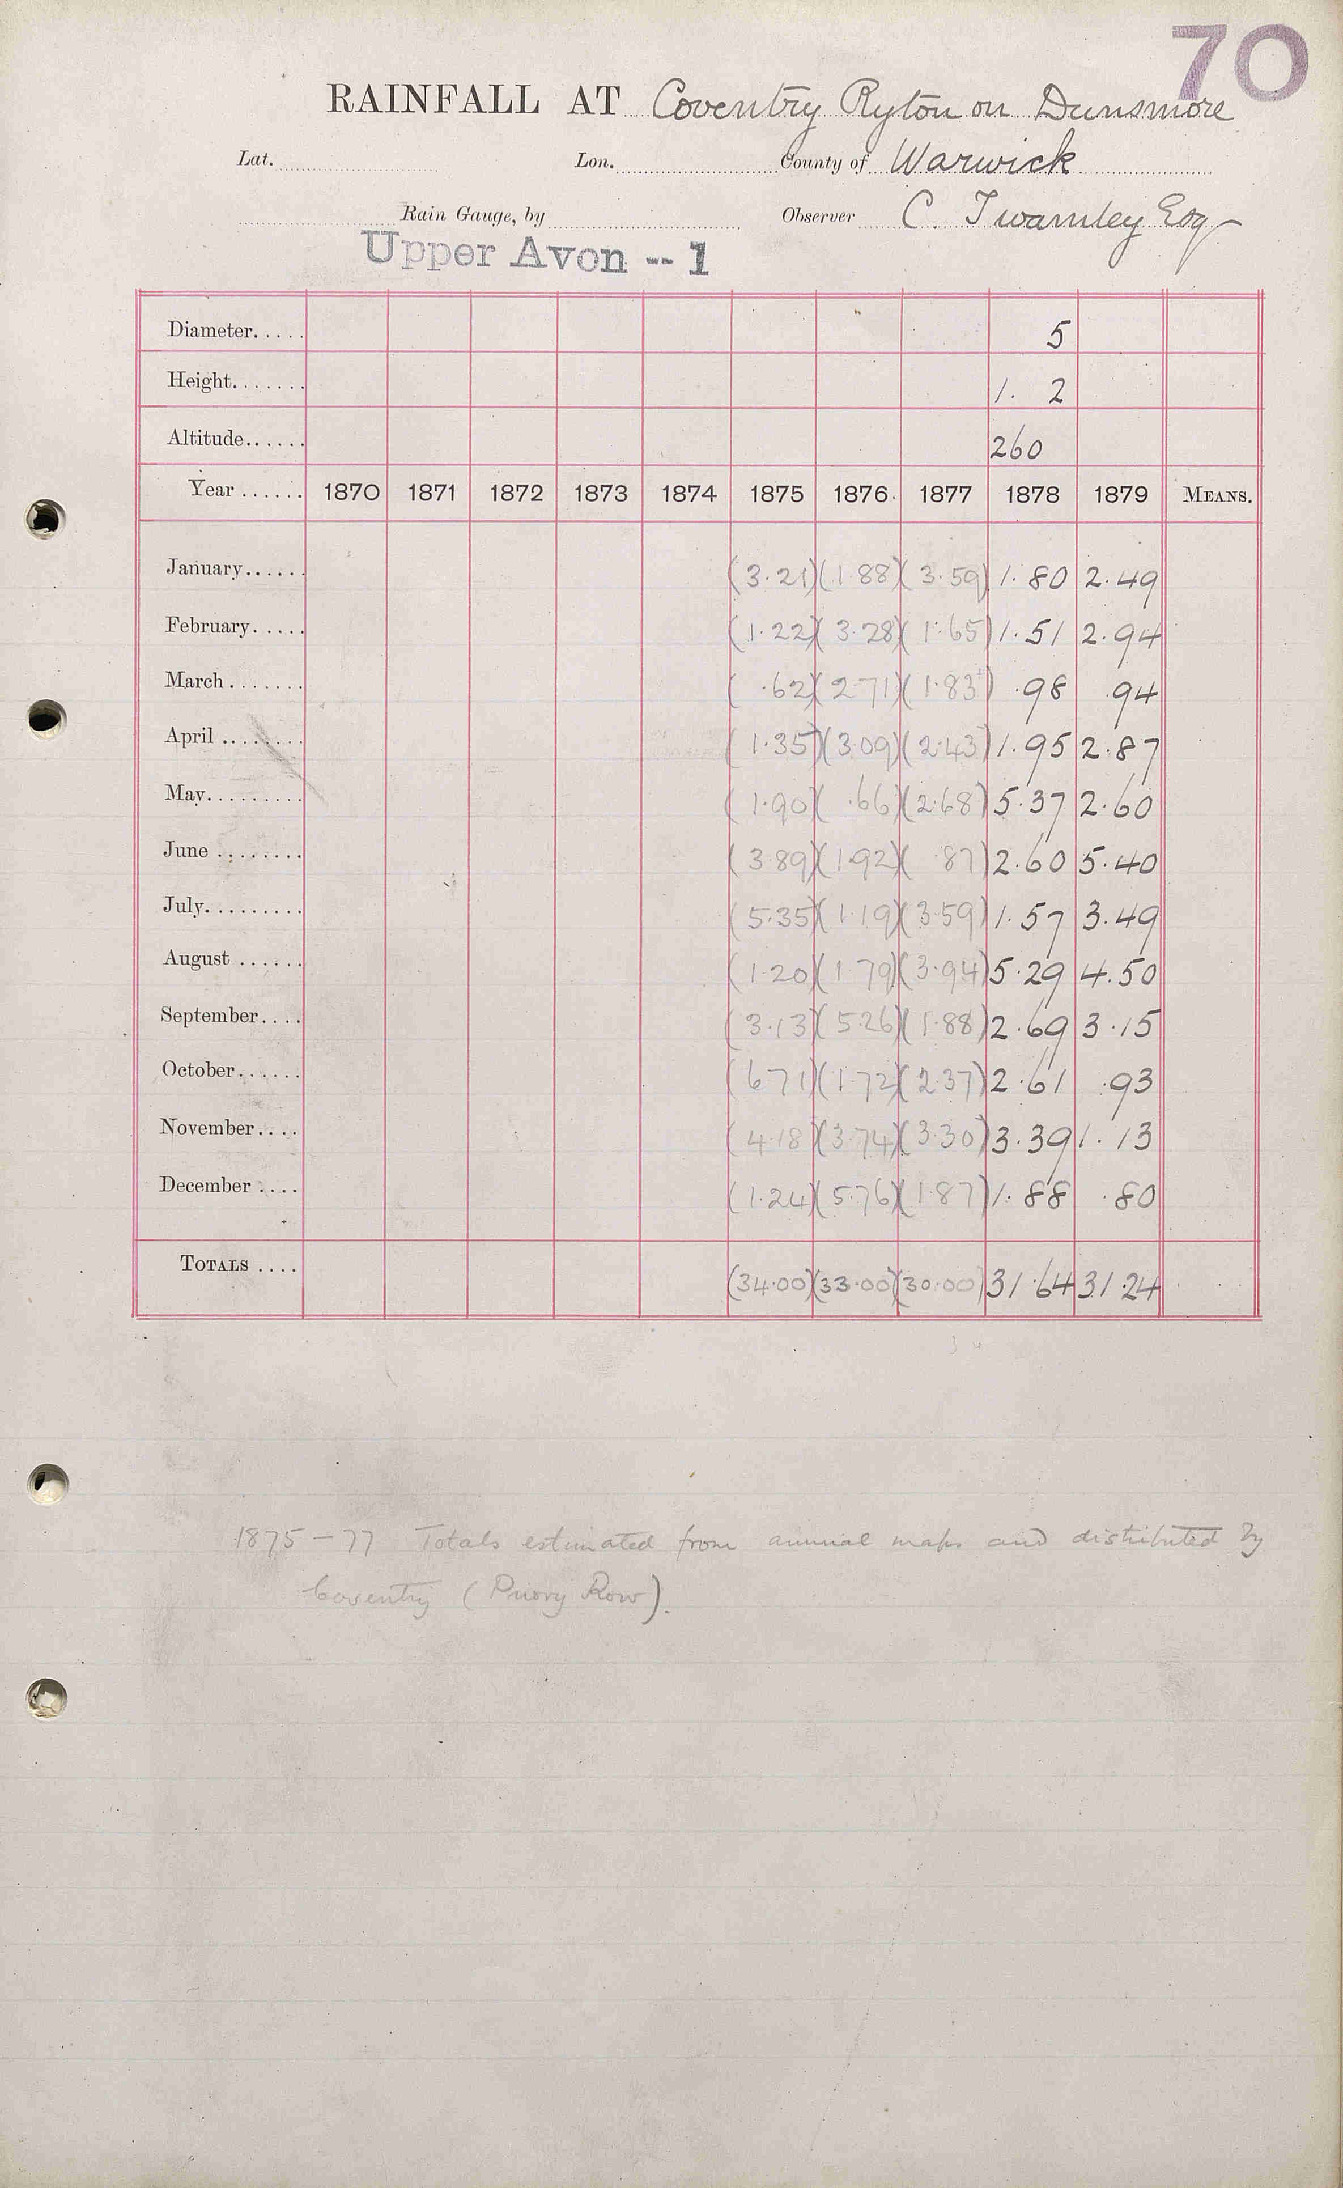 70
RAINFALL AT Coventry Ryton on Dunsmore
Lat. Lon. County of Warwick
Rain Gauge, by Observer C. Twamley Esq
Upper Avon -- 1
Diameter..... 5
Height....... 1. 2
Altitude...... 260
Year ...... 1870 1871 1872 1873 1874 1875 1876 1877 1878 1879 MEANS.
January...... (3.21) (1.88) (3.59) 1.80 2.49
February..... (1.22) (3.28) (1.65) 1.51 2.94
March ....... (.62) (2.71) (1.83) .98 .94
April ........ (1.35) (3.09) (2.43) 1.95 2.87
May......... (1.90) (.66) (2.68) 5.37 2.60
June ........ (3.89) (1.92) (.87) 2.60 5.40
July......... (5.35) (1.19) (3.59) 1.57 3.49
August ...... (1.20) (1.79) (3.94) 5.29 4.50
September.... (3.13) (5.26) (1.88) 2.69 3.15
October...... (6.71) (1.72) (2.37) 2.61 .93
November.... (4.18) (3.74) (3.30) 3.39 1.13
December .... (1.24) (5.76) (1.87) 1.88 .80
TOTALS .... (34.00) (33.00) (30.00) 31.64 31.24
1875 - 77 Totals estimated from annual maps and distributed by
Coventry (Priory Row).